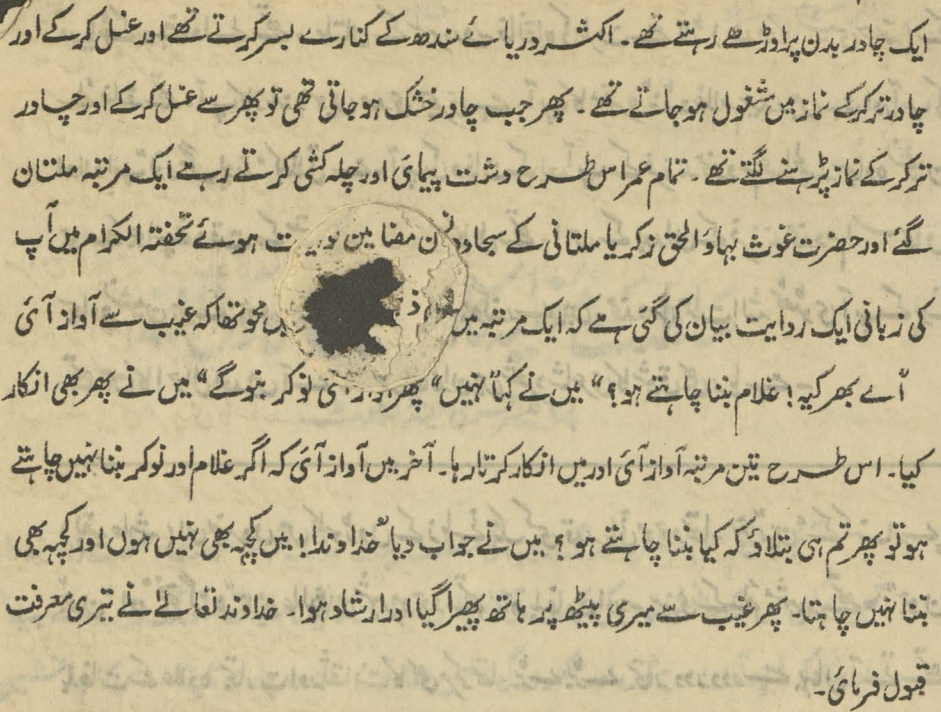 ایک چادر بدن پر اوڑھے رہتے تھے۔ اکثر دریائے سندھ کے کنارے بسر کرتے تھے اور غسل کرکے اور
چادر تر کرکے نماز میں مشغول ہو جاتے تھے۔ پھر جب چادر خشک ہو جاتی تھی تو پھر سے غسل کرکے اور چادر
تر کرکے نماز پڑہنے لگتے تھے۔ تمام عمر اس طرح دشت پیمائی اور چلہ کشی کرتے رہے ایک مرتبہ ملتان
گئے اور حضرت غوث بہاؤ الحق زکریا ملتانی کے ہوئے تحفتہ الکرام میں آپ
کی زبانی ایک روایت بیان کی گئی ہے کہ ایک مرتبہ میں محو تھا کہ غیب سے آواز آئی
"اے بھرکیہ! غلام بننا چاہتے ہو؟" میں نے کہا "نہیں" پھر نوکر بنو گے" میں نے پھر بھی انکار
کیا۔ اس طرح تین مرتبہ آواز آئی اور میں انکار کرتا رہا۔ آخر میں آواز آئی کہ اگر غلام اور نوکر بننا نہیں چاہتے
ہو تو پھر تم ہی بتلاؤ کہ کیا بننا چاہتے ہو؟ میں نے جواب دیا "خداوندا! میں کچہہ بھی نہیں ہوں اور کچہہ بھی
بننا نہیں چاہتا۔ پھر غیب سے میری پیٹھ پر ہاتھ پھیرا گیا اور ارشاد ہوا۔ خداوند تعالےٰ نے تیری معرفت
قبول فرمائی۔